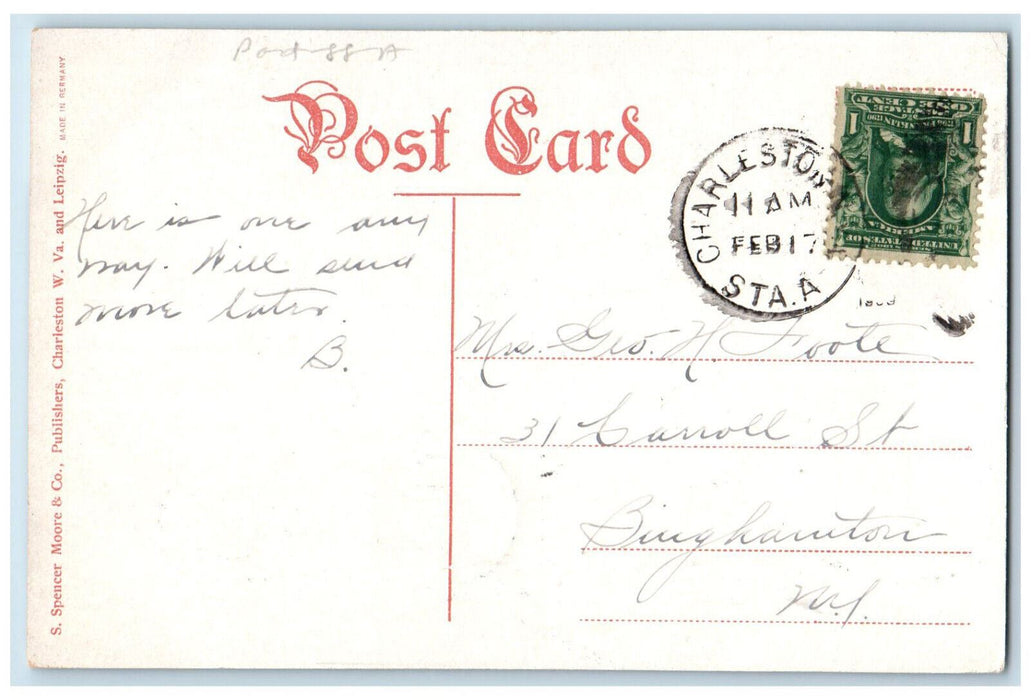 Post Card
S. Spencer Moore & Co., Publishers, Charleston W. Va. and Leipzig. MADE IN GERMANY
Here is one any
way. Will send
more later.
B.
CHARLESTON
11 AM
FEB 17
STA. A
1909
1 1
ONE CENT
POSTAGE
UNITED STATES OF
AMERICA
Mrs. Geo. H. Foote
31 Carroll St
Binghamton
N.Y.